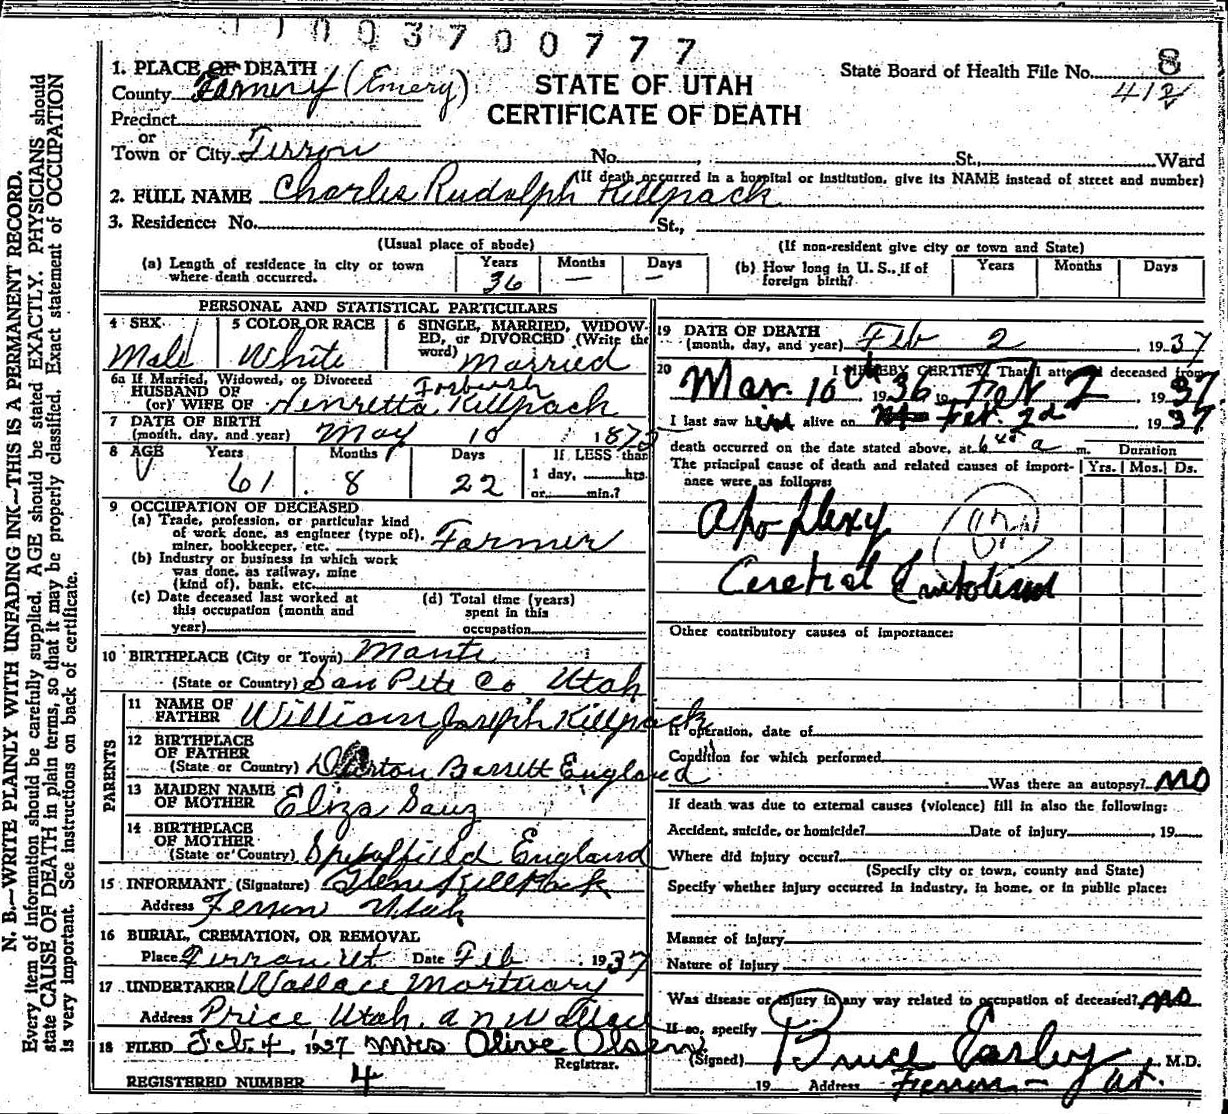 11003700777
1. PLACE OF DEATH
County (Emery)
STATE OF UTAH
CERTIFICATE OF DEATH
State Board of Health File No. 8
412
Precinct
or
Town or City Ferron No. , St., Ward
(If death occurred in a hospital or institution, give its NAME instead of street and number)
2. FULL NAME Charles Rudolph Killpack
3. Residence: No. St.,
(Usual place of abode) (If non-resident give city or town and State)
(a) Length of residence in city or town where death occurred. Years 36 Months — Days —
(b) How long in U. S., if of foreign birth? Years Months Days
PERSONAL AND STATISTICAL PARTICULARS
4 SEX Male
5 COLOR OR RACE White
6 SINGLE, MARRIED, WIDOWED, or DIVORCED (Write the word) Married
6a If Married, Widowed, or Divorced
HUSBAND OF
(or) WIFE OF Henretta Forbush Killpack
7 DATE OF BIRTH
(month, day, and year) May 10 1875
8 AGE Years 61 Months 8 Days 22 If LESS than
1 day, hrs.
or min.?
9 OCCUPATION OF DECEASED
(a) Trade, profession, or particular kind
of work done, as engineer (type of),
miner, bookkeeper, etc. Farmer
(b) Industry or business in which work
was done, as railway, mine
(kind of), bank, etc.
(c) Date deceased last worked at
this occupation (month and
year)
(d) Total time (years)
spent in this
occupation
10 BIRTHPLACE (City or Town) Manti
(State or Country) San Pete Co Utah
PARENTS
11 NAME OF
FATHER William Joseph Killpack
12 BIRTHPLACE
OF FATHER
(State or Country) Barrett England
13 MAIDEN NAME
OF MOTHER Eliza
14 BIRTHPLACE
OF MOTHER
(State or Country) England
15 INFORMANT (Signature) Killpack
Address Ferron Utah
16 BURIAL, CREMATION, OR REMOVAL
Place Ferron Ut Date Feb . 1937
17 UNDERTAKER Wallace Mortuary
Address Price Utah.
18 FILED Feb. 4, 1937 Mrs Olive Olsen
Registrar.
REGISTERED NUMBER 4
19 DATE OF DEATH
(month, day, and year) Feb 2 , 1937
20 I HEREBY CERTIFY, That I attended deceased from
Mar. 10th, 1936 to Feb 2, 1937
I last saw him alive on Feb. 2d , 1937
death occurred on the date stated above, at 6 45 a m.
The principal cause of death and related causes of importance were as follows:
Duration
Yrs. Mos. Ds.
Apoplexy
Cerebral Embolism
Other contributory causes of importance:
If operation, date of
Condition for which performed
Was there an autopsy? no
If death was due to external causes (violence) fill in also the following:
Accident, suicide, or homicide? Date of injury , 19
Where did injury occur?
(Specify city or town, county and State)
Specify whether injury occurred in industry, in home, or in public place:
Manner of injury
Nature of injury
Was disease or injury in any way related to occupation of deceased? no
If so, specify
(Signed) Bruce Easley , M.D.
19 Address Ferron - Ut.
N. B.—WRITE PLAINLY WITH UNFADING INK—THIS IS A PERMANENT RECORD.
Every item of information should be carefully supplied. AGE should be stated EXACTLY. PHYSICIANS should
state CAUSE OF DEATH in plain terms, so that it may be properly classified. Exact statement of OCCUPATION
is very important. See instructions on back of certificate.